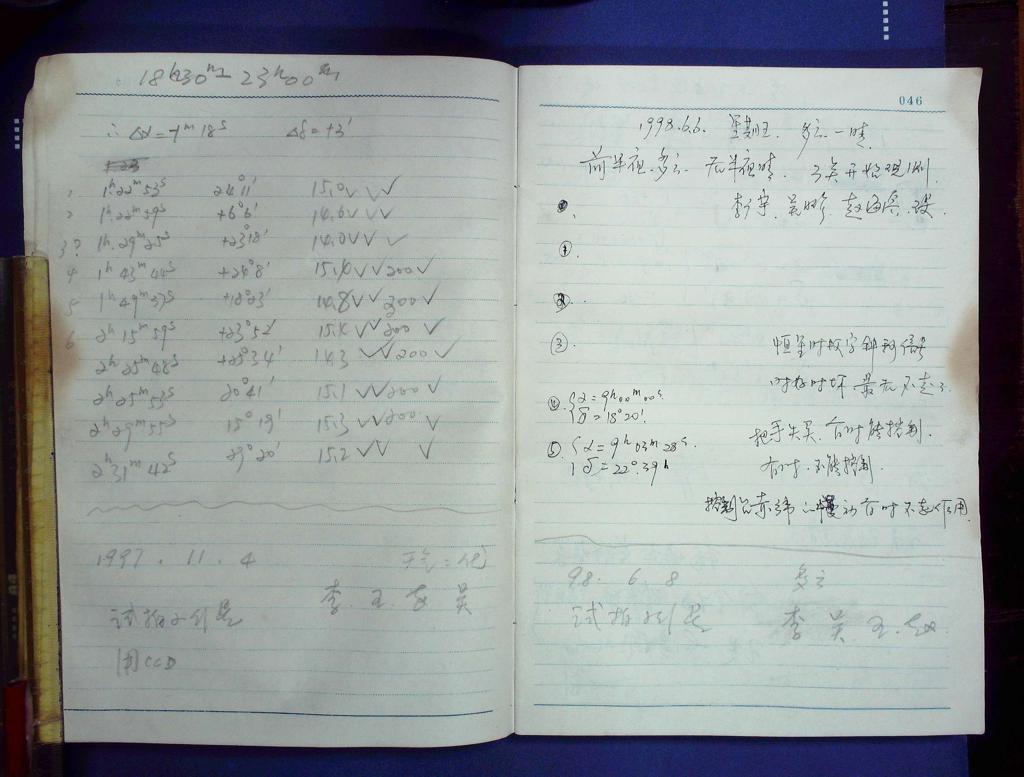 18h30m — 23h00m
∴ Δα=-1m18s Δδ=+3'
1 1h22m53s 24°11' 15.0 ✓ ✓
2 1h22m59s +6°6' 14.6 ✓ ✓
3? 1h29m25s +23°18' 14.0 ✓ ✓ ✓
4 1h43m44s +24°8' ✓ ✓ 200 ✓
5 1h49m37s +18°23' 14.8 ✓ ✓ 200 ✓
6 2h15m59s +23°52' ✓ ✓ 200 ✓
2h25m48s +25°34' 14.3 ✓ ✓ 200 ✓
2h25m53s 20°41' 15.1 ✓ ✓ 200 ✓
2h29m55s 15°19' 15.3 ✓ ✓ 200 ✓
2h31m42s 29°20' 15.2 ✓ ✓ ✓
1997. 11. 4 天气:
李. 王. 吴
试拍小行星
用CCD
046
1998.6.6. 星期五. 多云—晴.
前半夜.多云. 后半夜晴. 3点开始观测.
李 吴 赵海
①.
②.
③. 恒星时数字钟
时好时坏 最后不走了.
④. {α=9h00m00s
δ=18°20'.
把手失灵. 有时能控制.
⑤. {α=9h03m28s.
δ=22°.39
有时.不能控制.
控制台赤纬 慢动有时不起作用
98. 6. 8 多云
试拍小行星 李 吴 王.